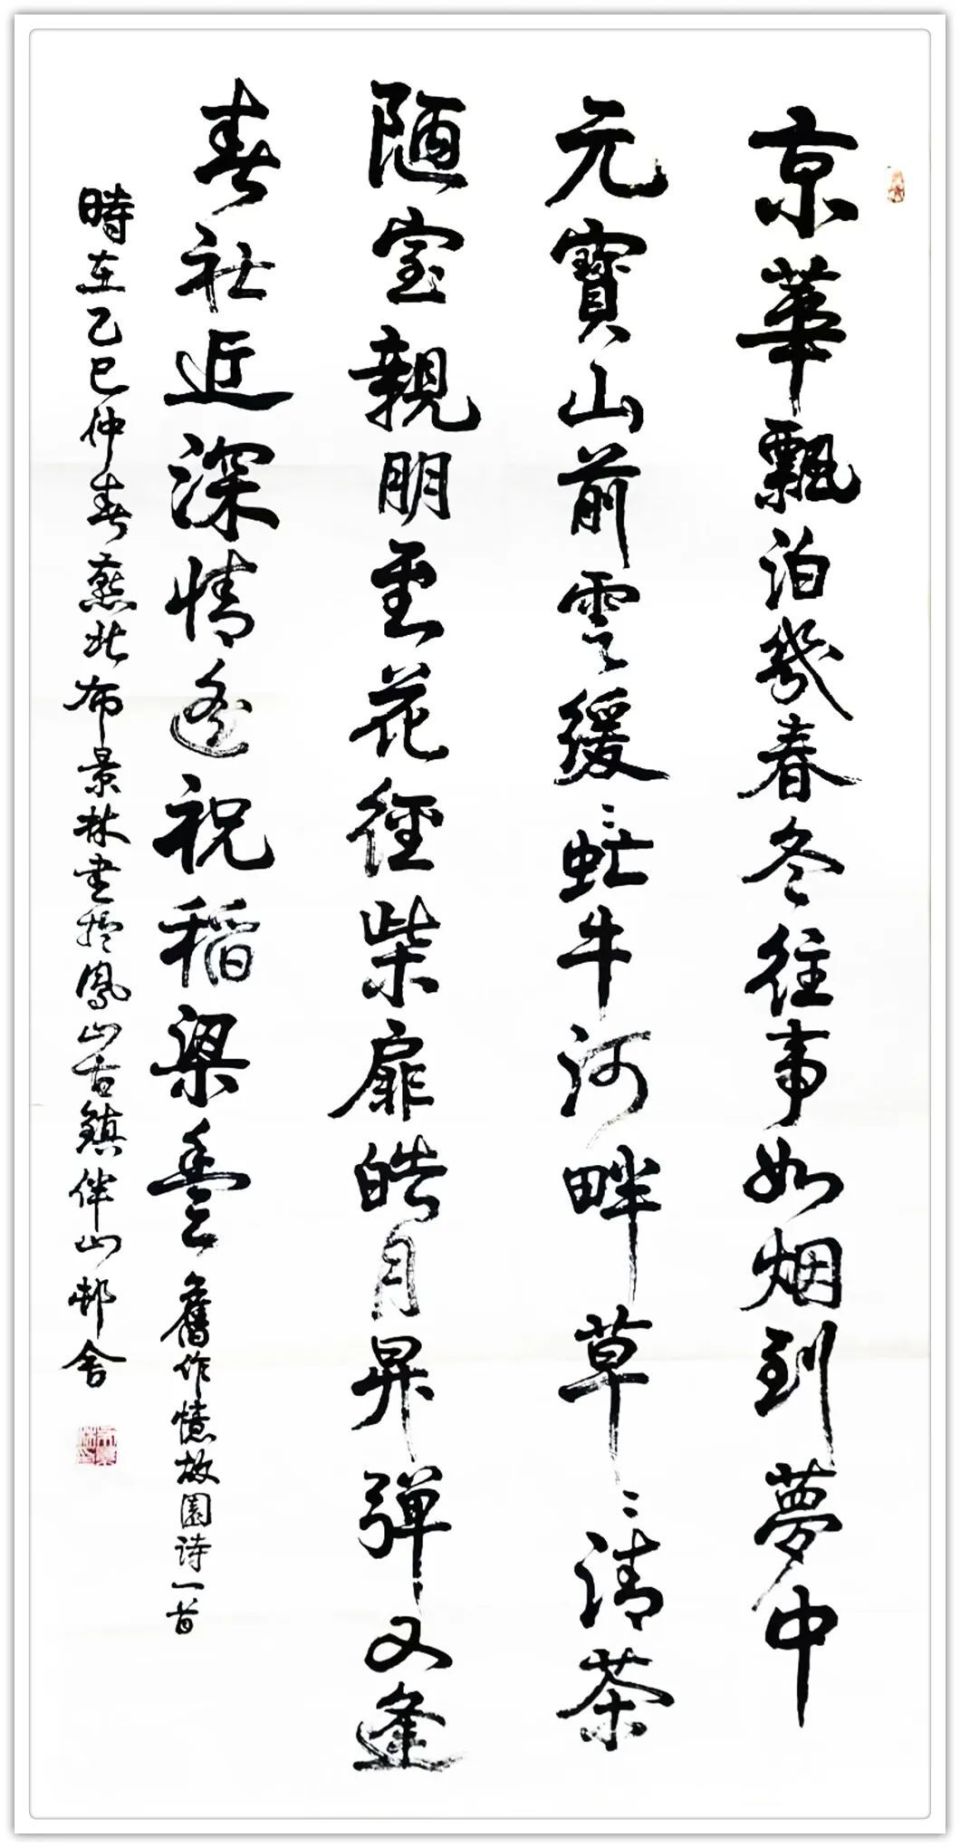 京華飄泊幾春冬往事如烟到夢中
元寶山前雲緩〻虻牛河畔草〻清茶
陋室親朋至花徑柴扉皓月昇彈又逢
春社近深情遙祝稻粱豐舊作憶故園诗一首
時在乙巳仲春燕北布景林書於鳳山古鎮伴山邨舍